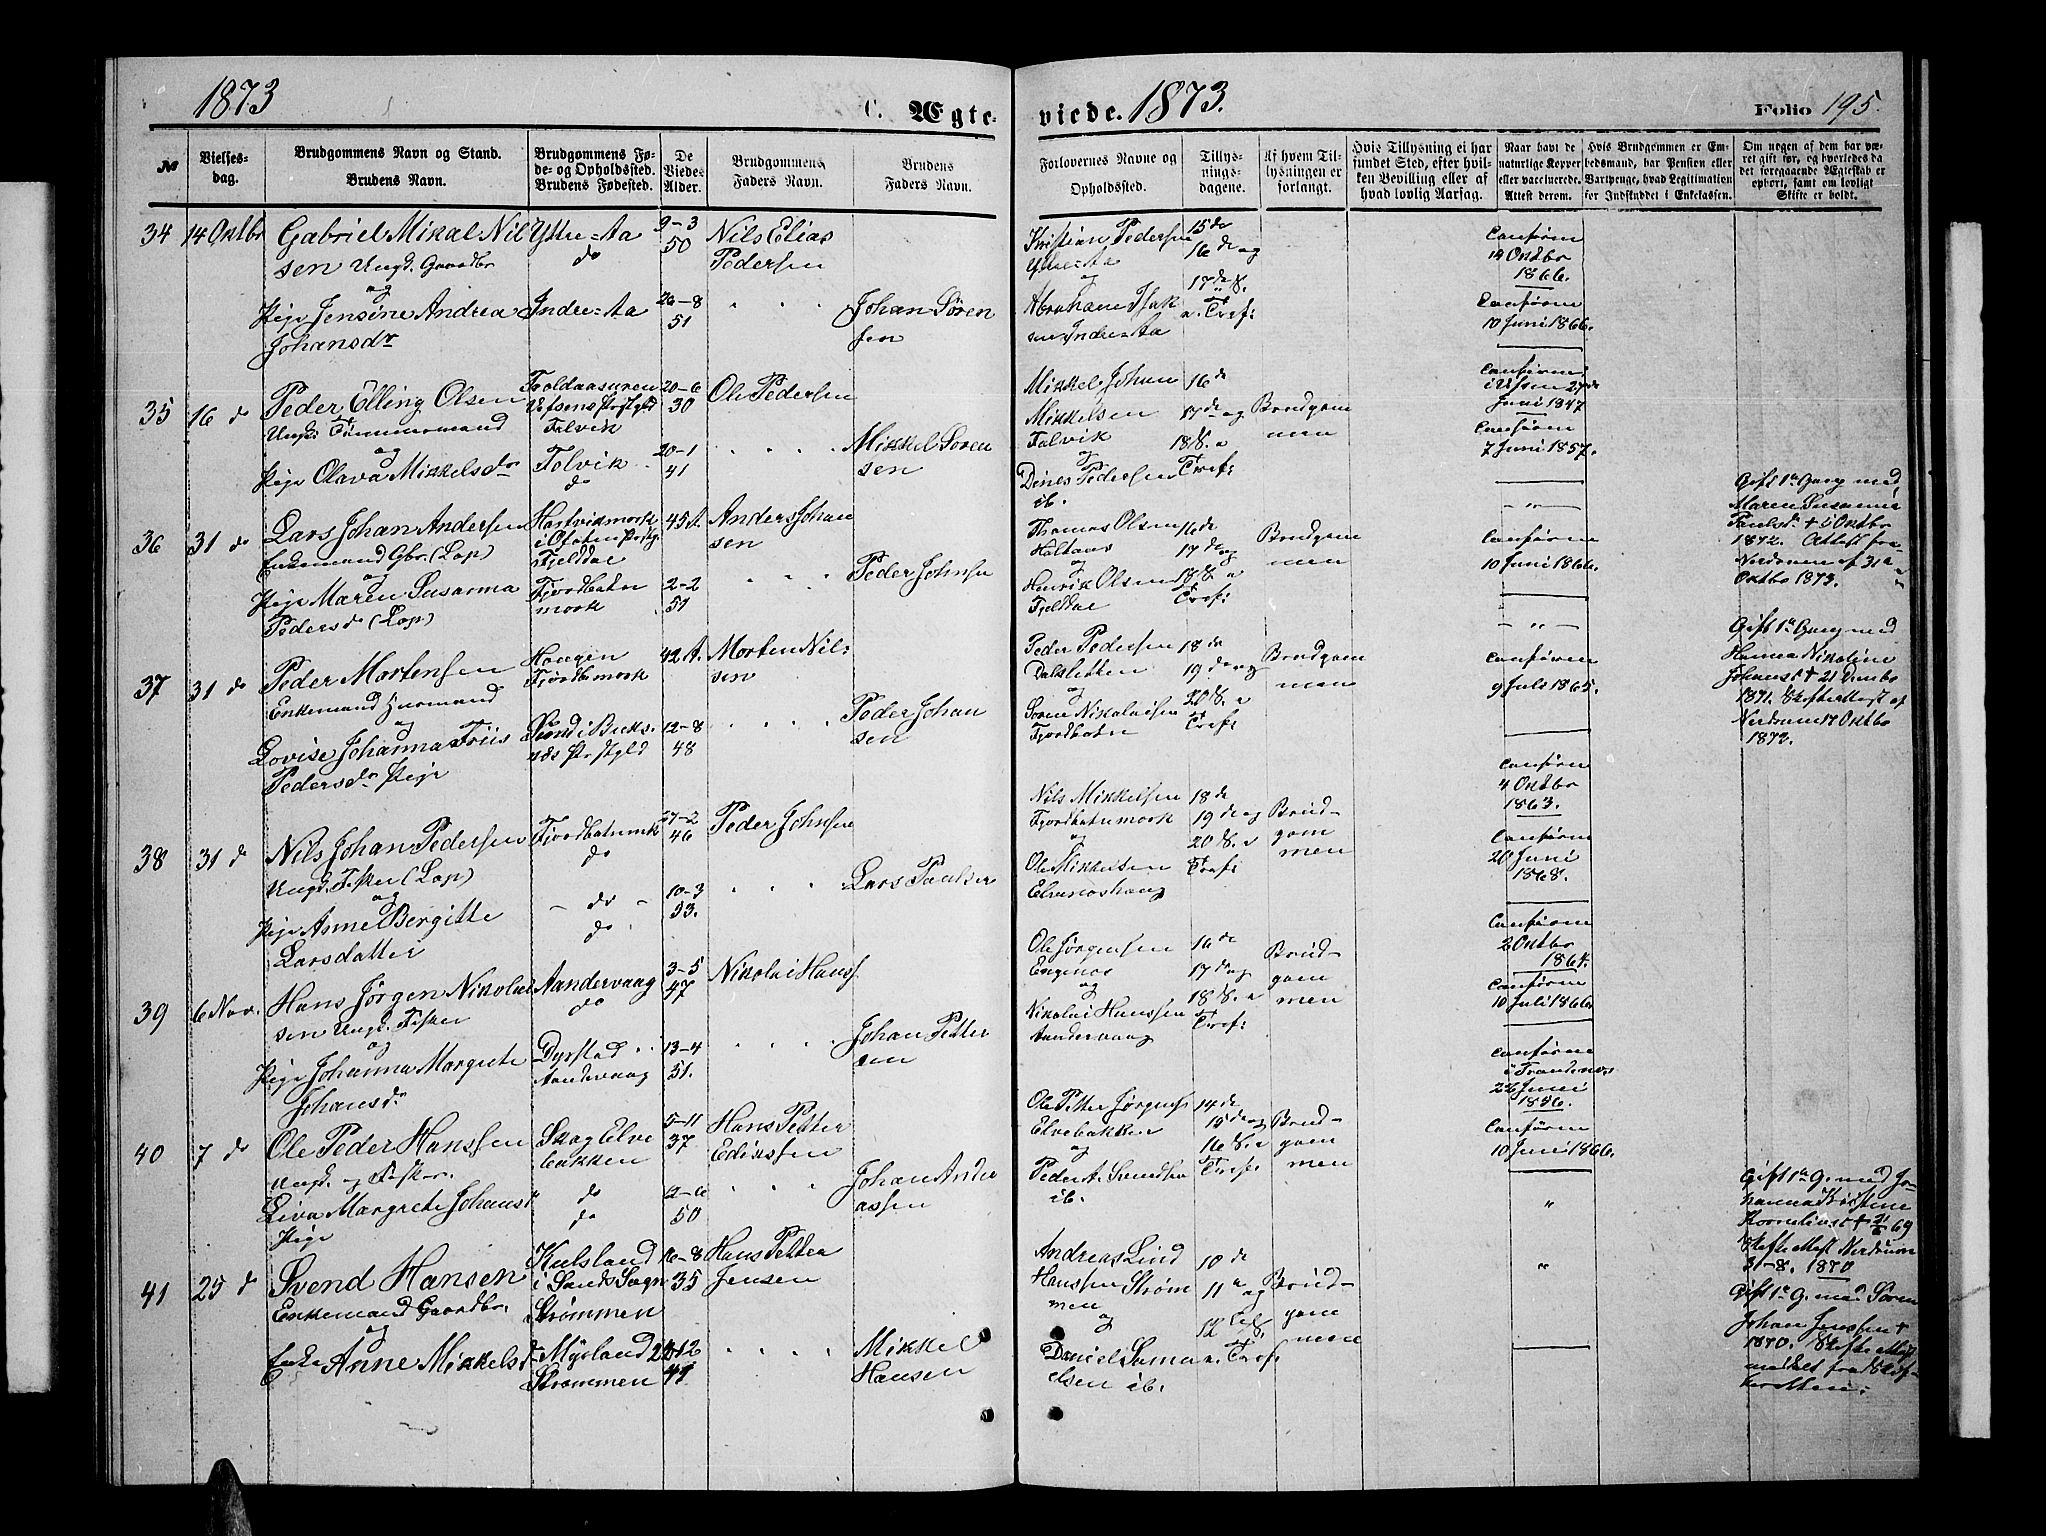 1873
C. Ægte=
viede. 1873.
Folio 195.
№
Vielses-
dag.
Brudgommens Navn og Stand.
Brudens Navn.
Brudgommens Fø-
de- og Opholdssted.
Brudens Fødested.
De
Viedes
Alder.
Brudgommens
Faders Navn.
Brudens
Faders Navn.
Forlovernes Navne og
Opholdssted.
Tillys-
nings-
dagene.
Af hvem Til-
lysningen er
forlangt.
Hvis Tillysning ei har
fundet Sted, efter hvil-
ken Bevilling eller af
hvad lovlig Aarsag.
Naar havt de
naturlige Kopper
eller vaccinerede.
Attest derom.
Hvis Brudgommen er Em-
bedsmand, har Pension eller
Vartpenge, hvad Legitimation
for Indskuddet i Enkekassen.
Om nogen af dem har væ-
ret gift før, og hvorledes da
det foregaaende Ægteskab er
ophørt, samt om lovligt
Skifte er holdt.
34 14 Oktbr
Gabriel Mikal Nil
sen Ungk. Gaardbr
og
Pige Jensine Andrea
Johansdr
Yttre=Aa
do
Indre=Aa
9-3
50
26-8
51
Nils Elias
Pedersen
Johan Sören
sen
Kristian Pedersen
Yttre=Aa
og
Abraham Isak
sen Indre=Aa
15de
16de og
17de S.
e. Tref:
Confirm
14 Oktbr
1866.
Confirm
10 Juni 1866.
35 16 do
Peder Elling Olsen
Ungk. Tömmermand
og
Pige Olava Mikkelsdr
Troldaasuren
Vefsens Prstgld
Tolvik
Tolvik
do
20-6
30
20-1
41
Ole Pedersen
Mikkel Sören
sen
Mikkel Johan
Mikkelsen
Tolvik
og
Dines Pedersen
ib.
16de
17de og
18 S. e
Tref:
Brudgom
men
Confirm
i Vefsen 27de
Juni 1847
Confirm
7 Juni 1857.
36 31 do
Lars Johan Andersen
Enkemand Gbr. (Lap)
og
Pige Maren Susanna
Pedersdr (Lap)
Hartvikmark
i Ofoten Prstg
Fjelddal
Fjordbotn
mark
45 A.
2-2
51
Anders Johan
sen
Peder Johnsen
Thomas Olsen
Holtaas
og
Henrik Olsen
Fjelddal
16de
17de og
18 S. e
Tref:
Brudgom
men
Confirm
10 Juni 1866.
Gift 1e Gang med
Maren Susanna
Paulsdr + i Oktbr
1872. Attest fra
Nerdrum af 31
Oktbr 1873.
37 31 do
Peder Mortensen
Enkemand Husmand
og
Lovise Johanna Friis
Pedersdr Pige
Haugen
Fjordbmark
Sund i Buks-
næs Prstgld
42 A.
12-8
48
Morten Nil-
sen
Peder Johan
sen
Peder Pedersen
og
Sören Nikolaisen
Fjordbotn
18de
19de og
20 S. e
Tref:
Brudgom
men
Confirm
9 Juli 1865.
Confirm
4 Oktbr
1863.
Gift 1e Gang med
Hanna Nikoline
Johansd + 21 Decmbr
1871. Skifteattest af
Nerdrum 17 Oktbr
1873.
38 31 do
Nils Johan Pedersen
Ungk. Fisker (Lap)
og
Pige Anne Bergitte
Larsdatter
Fjordbotnmk
do
- do -
do
27-2
46
10-3
53.
Peder Johnsen
Lars Paulsen
Nils Mikkelsen
Fjordbotnmark
og
Ole Mikkelsen
Elvenæshaug
18de
19de og
20 S. e
Tref:
Brud-
gom
men
Confirm
20 Juni
1868.
39 6 Nov.
Hans Jörgen Nikolai
sen Ungk. Fisker
og
Pige Johanna Margrete
Johansdr
Aandervaag
do
Dyrstad
Aandervaag
3-5
47
13-4
51.
Nikolai Hans
Johan Petter
sen
Ole Jörgensen
Engenes
og
Nikolai Hanssen
Aandervaag
16de
17de og
18 S. e
Tref:
Brud-
gom
men
Confirm
2 Oktbr
1864.
Confirm
10 Juli 1866.
40 7 do
Ole Peder Hanssen
Ungk. og Fisker.
Liva Margrete Johansd
Pige
Skog Elve
bakken
do
do
5-11
37
2-6
50
Hans Petter
Johan Andre
assen
Ole Petter Jörgens
Elvebakken
og
Peder A. Svendsen
ib.
14de
15de og
16 S. e
Tref:
Brud-
gom
men
Confirm
i Trondenæs
22 Juni
1856.
Confirm
10 Juni 1866.
41 25 do
Svend Hansen
Enkemand Gaardbr.
og
Enke Anne Mikkelsd
i Sands Sogn
Strömmen
Mysland
Strömmen
16-8
35
Hans Petter
Jensen
Mikkel
Hansen
Andreas Lind
Hanssen Ström
men
og
Daniel Samu
elsen ib.
10de
11e og
12
e. Tref.
Brud-
gom
men
Gift 1e G. med Jo-
hanna Kristine
Skifteattest Nerdrum
31-8. 1870
Gift 1e G. med Sören
Johan Jenssen +
1870. Skifteattest